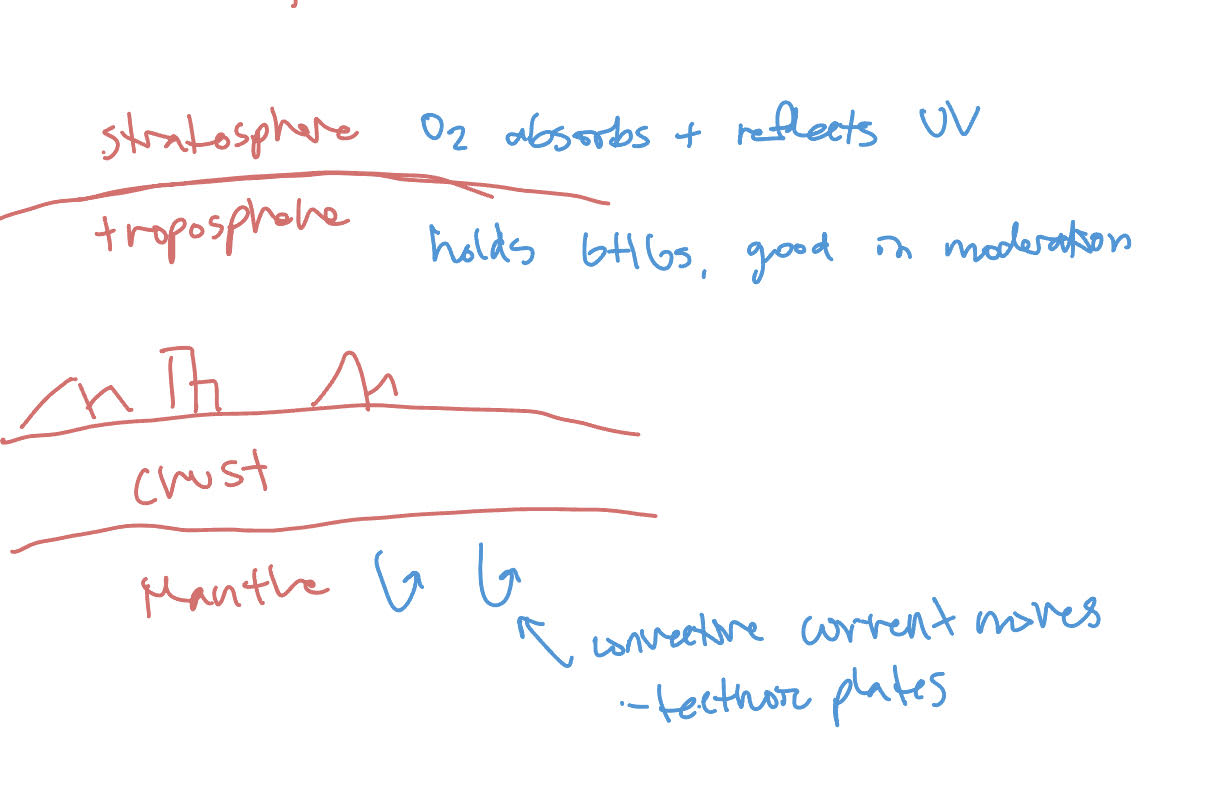 stratosphere O2 absorbs + reflects UV
troposphere holds GHGs, good in moderation
crust
Mantle
convective current moves
tectonic plates